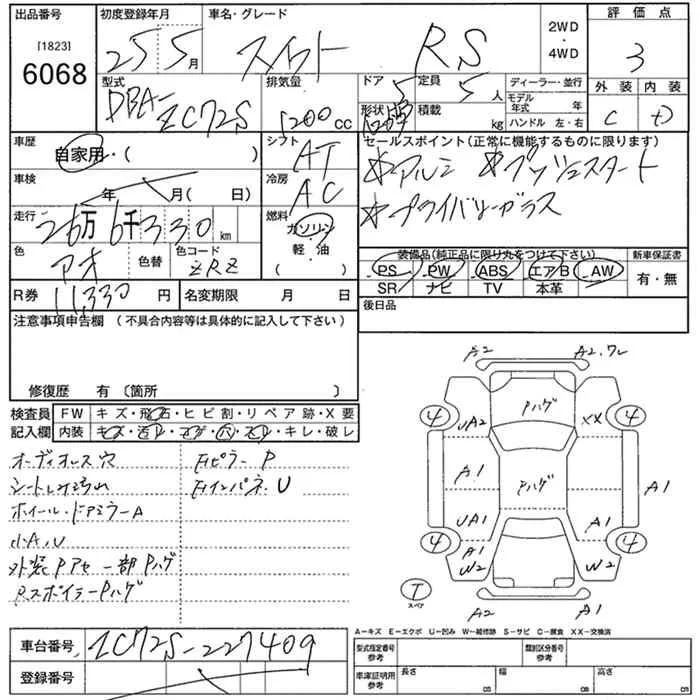 出品番号 初度登録年月 車名・グレード 評価点
[1823]
6068
25 5月 スイフト RS 2WD・4WD 3
型式 排気量 ドア 定員 ディーラー・並行 外装 内装
DBA-ZC72S 1200cc 5 5人 モデル年式 年 C D
形状 積載 kg ハンドル 左・右
車歴 シフト セールスポイント(正常に機能するものに限ります)
自家用・( ) AT ☆アルミ ☆プッシュスタート
車検 冷房
年 月( 日) AC ☆プライバシーガラス
走行 燃料
26万6千330km ガソリン
軽・油
( )
色 色替 色コード
アオ ZRZ
装備品(純正品に限り丸をつけて下さい) 新車保証書
PS PW ABS エアB AW 有・無
SR ナビ TV 本革
R券 11,330円 名変期限 月 日 後日品
注意事項申告欄 (不具合内容等は具体的に記入して下さい)
修復歴 有 〔箇所 〕
検査員 FW キズ・飛石・ヒビ割・リペア跡・X要
記入欄 内装 キズ・汚レ・コゲ・穴・スレ・キレ・破レ
オーディオレス穴 Fピラー P
Fインパネ U
ホイール・ドアミラーA
小A、U
外装Pアセ 一部Pハゲ
RスポイラーPハゲ
A2 A2.ワレ
Pハゲ
4 UA2 XX 4
A1 Pハゲ A1
UA1 A1
4 A1 W2 W2 4
T
スペア
A2 A1
A―キズ E―エクボ U―凹み W―補修跡 S―サビ C―腐食 XX―交換済
車台番号 ZC72S-227409
登録番号
型式指定番号 参考 類別区分番号 参考
車庫証明用 参考 長さ cm 幅 cm 高さ cm